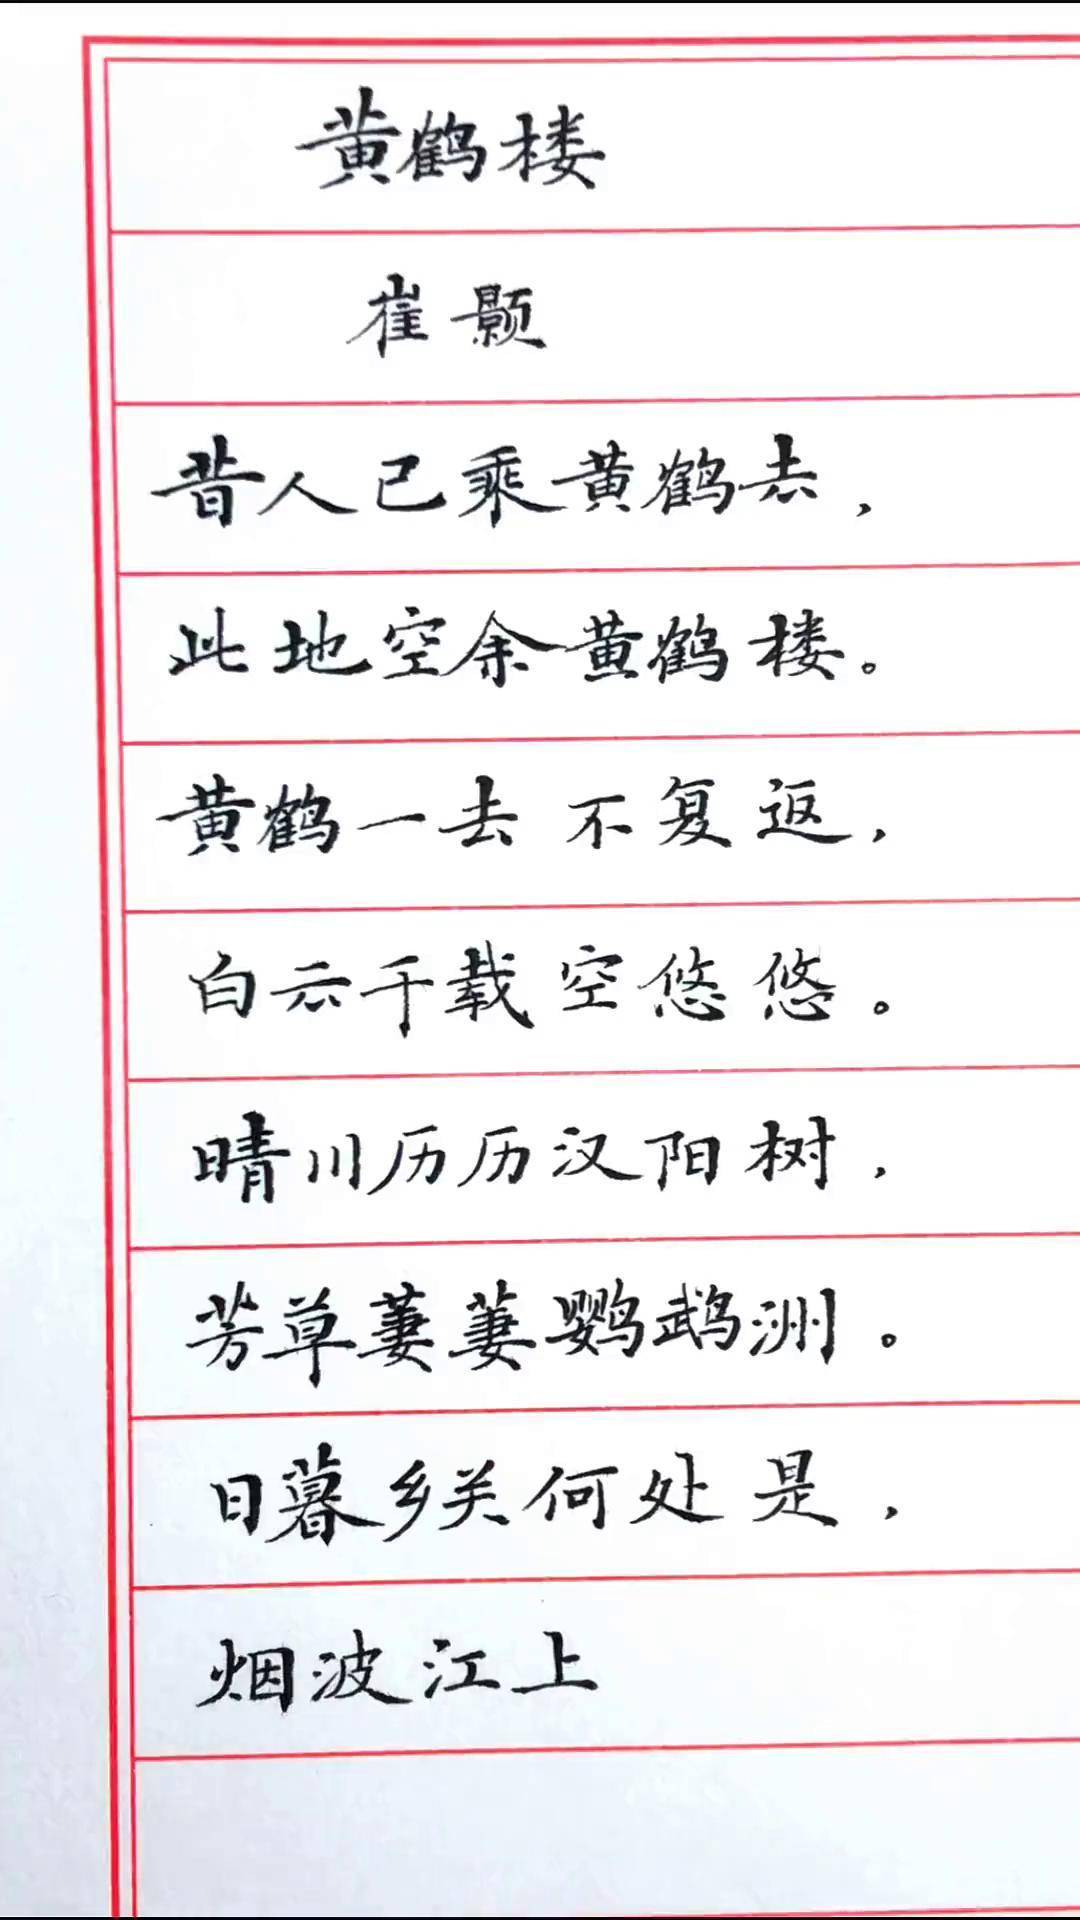 黄鹤楼
崔颢
昔人已乘黄鹤去，
此地空余黄鹤楼。
黄鹤一去不复返，
白云千载空悠悠。
晴川历历汉阳树，
芳草萋萋鹦鹉洲。
日暮乡关何处是，
烟波江上